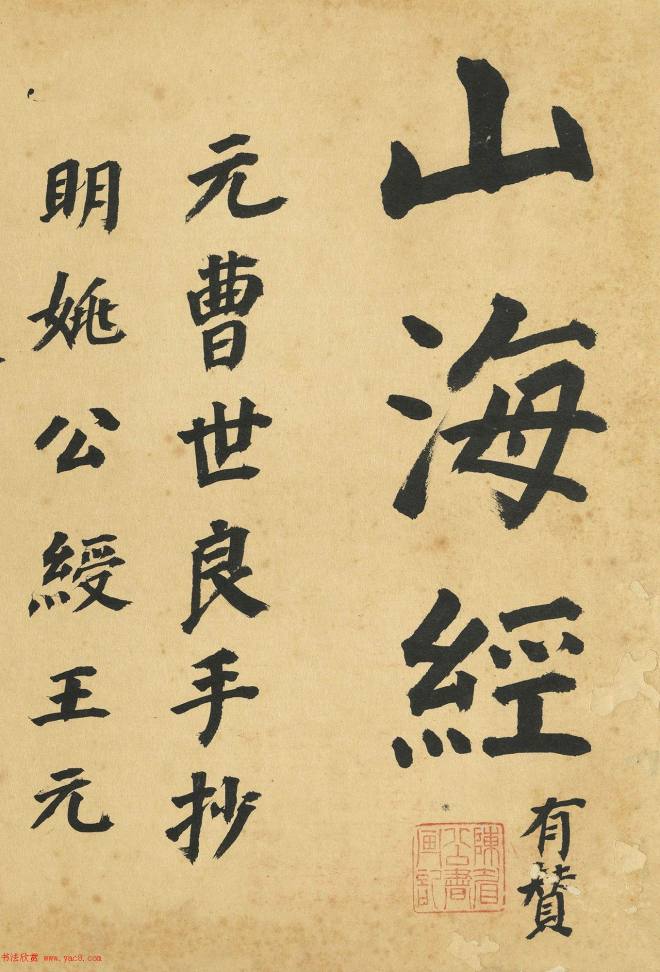 山海經
有贊
元曹世良手抄
明姚公綬王元
陳眉公書画記
书法欣赏 www.yac8.com